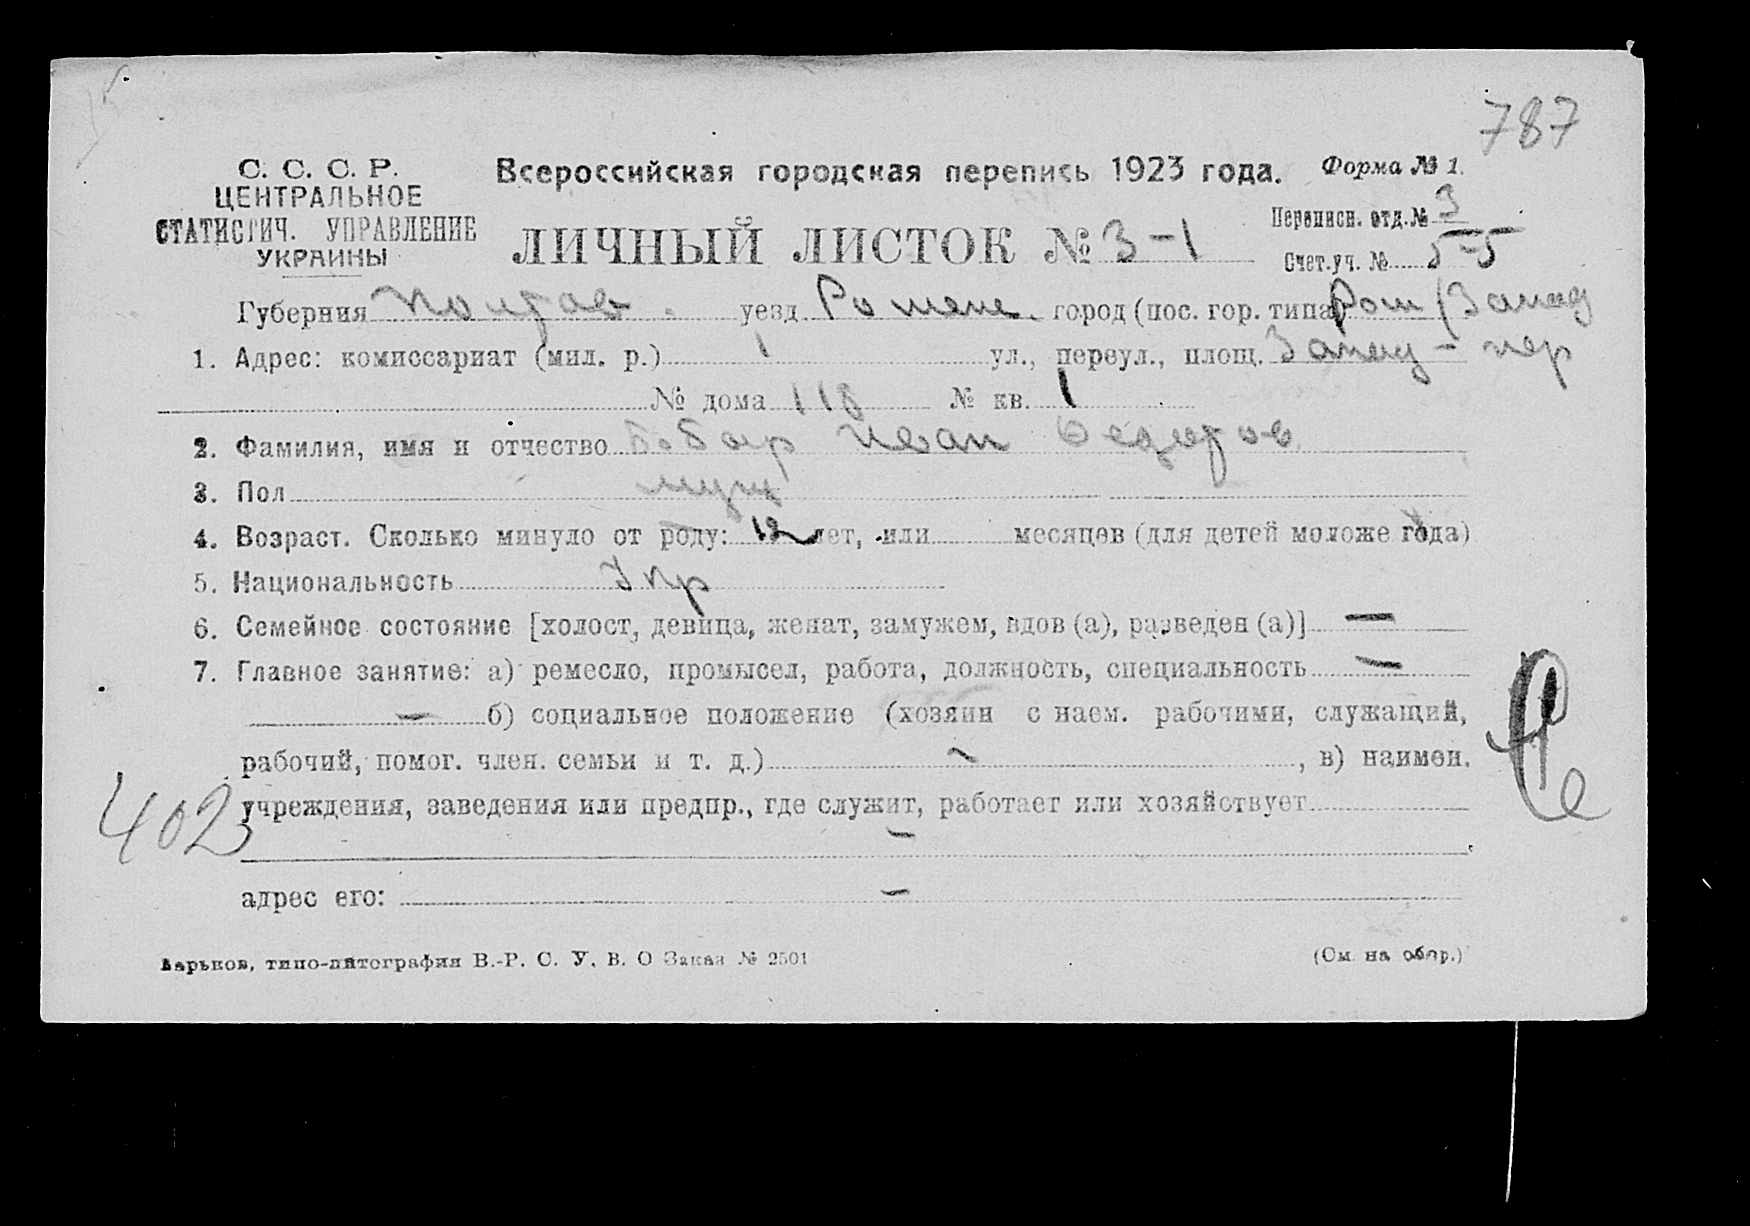 787
С. С. С. Р.
ЦЕНТРАЛЬНОЕ
СТАТИСТИЧ. УПРАВЛЕНИЕ
УКРАИНЫ
Всероссийская городская перепись 1923 года. Форма № 1.
ЛИЧНЫЙ ЛИСТОК № 3-1
Переписн. отд. № 3
Счет. уч. № 5-5
Губерния Полтав. уезд Ромене. город (пос. гор. типа) Ром (Запад
1. Адрес: комиссариат (мил. р.) 1 ул., переул., площ. Запад - пер
№ дома 118 № кв. 1
2. Фамилия, имя и отчество Иван Федотов
3. Пол муж
4. Возраст. Сколько минуло от роду: 12 лет, или месяцев (для детей моложе года)
5. Национальность Укр
6. Семейное состояние [холост, девица, женат, замужем, вдов (а), разведен (а)] —
7. Главное занятие: а) ремесло, промысел, работа, должность, специальность —
— б) социальное положение (хозяин с наем. рабочими, служащий,
рабочий, помог. член. семьи и т. д.) — , в) наимен.
учреждения, заведения или предпр., где служит, работает или хозяйствует
—
402
адрес его: —
Харьков, типо-литография В.-Р. С. У. В. О Заказ № 2501
(См. на обор.)